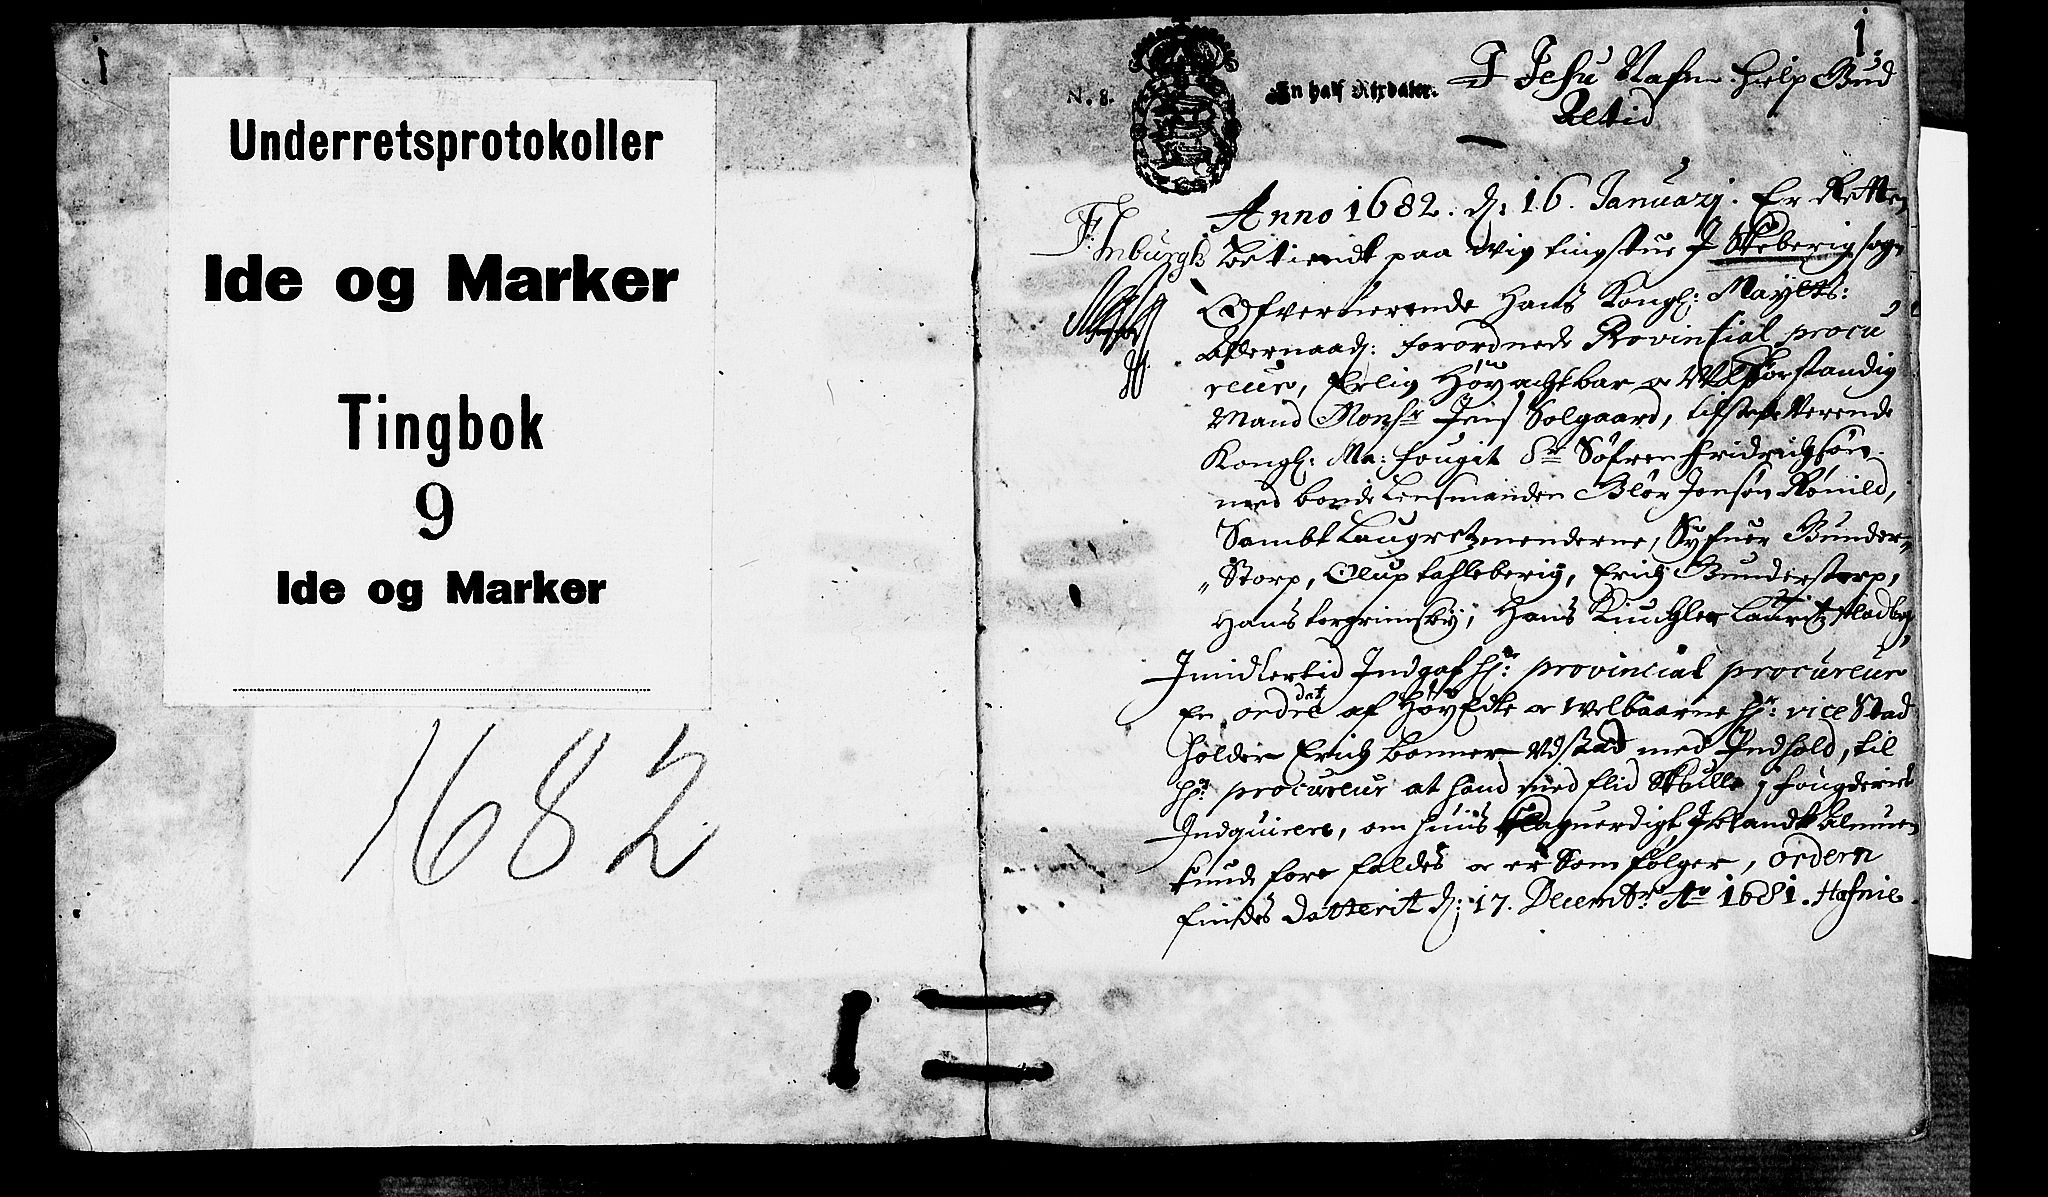 1
Underretsprotokoller
Ide og Marker
Tingbok
9
Ide og Marker
1682
1.
N. 8. En half Rixdaler.
I Jesu Nafn hielp Gud
Altid
Anno 1682. d: 16. Januarij. Er Retten
Betiendt paa Wig tingstue J Skieberig sogn
Ofververende Hans Kongl: Mayets:
Allernaad: forordnede Provintial procu
reur, Erlig Høy achtbar oc Velforstandig
Mand Monsr Jens Solgaard, tilstede Verende
Kongl: Ma: fougit Sr Søfren Fridrichsøn
med bonde Lensmanden Biør Jonsøn Rønild,
Sambt Laugretzmenderne, Syfuer Gunder-
Storp, Oluf tafleberig, Erich Gunderstorp,
Hans torgrimsby, Hans Kiuchler Lauritz
Imidlertid Indgaf hr: provincial procureur
En ordre dat af Høy Edle oc Welbaarne hr: vice Stad
holder Erich banner Vdstæd med Indhold, til
hr: procureur at hand med flid Skulle j fougderiet
Indquirere, om huis Klaguerdigt Iblandt Almuen
kunde fore faldes oc er Som følger, ordern
findes Datterit d: 17. Decembr: Ao 1681. Hafnie.